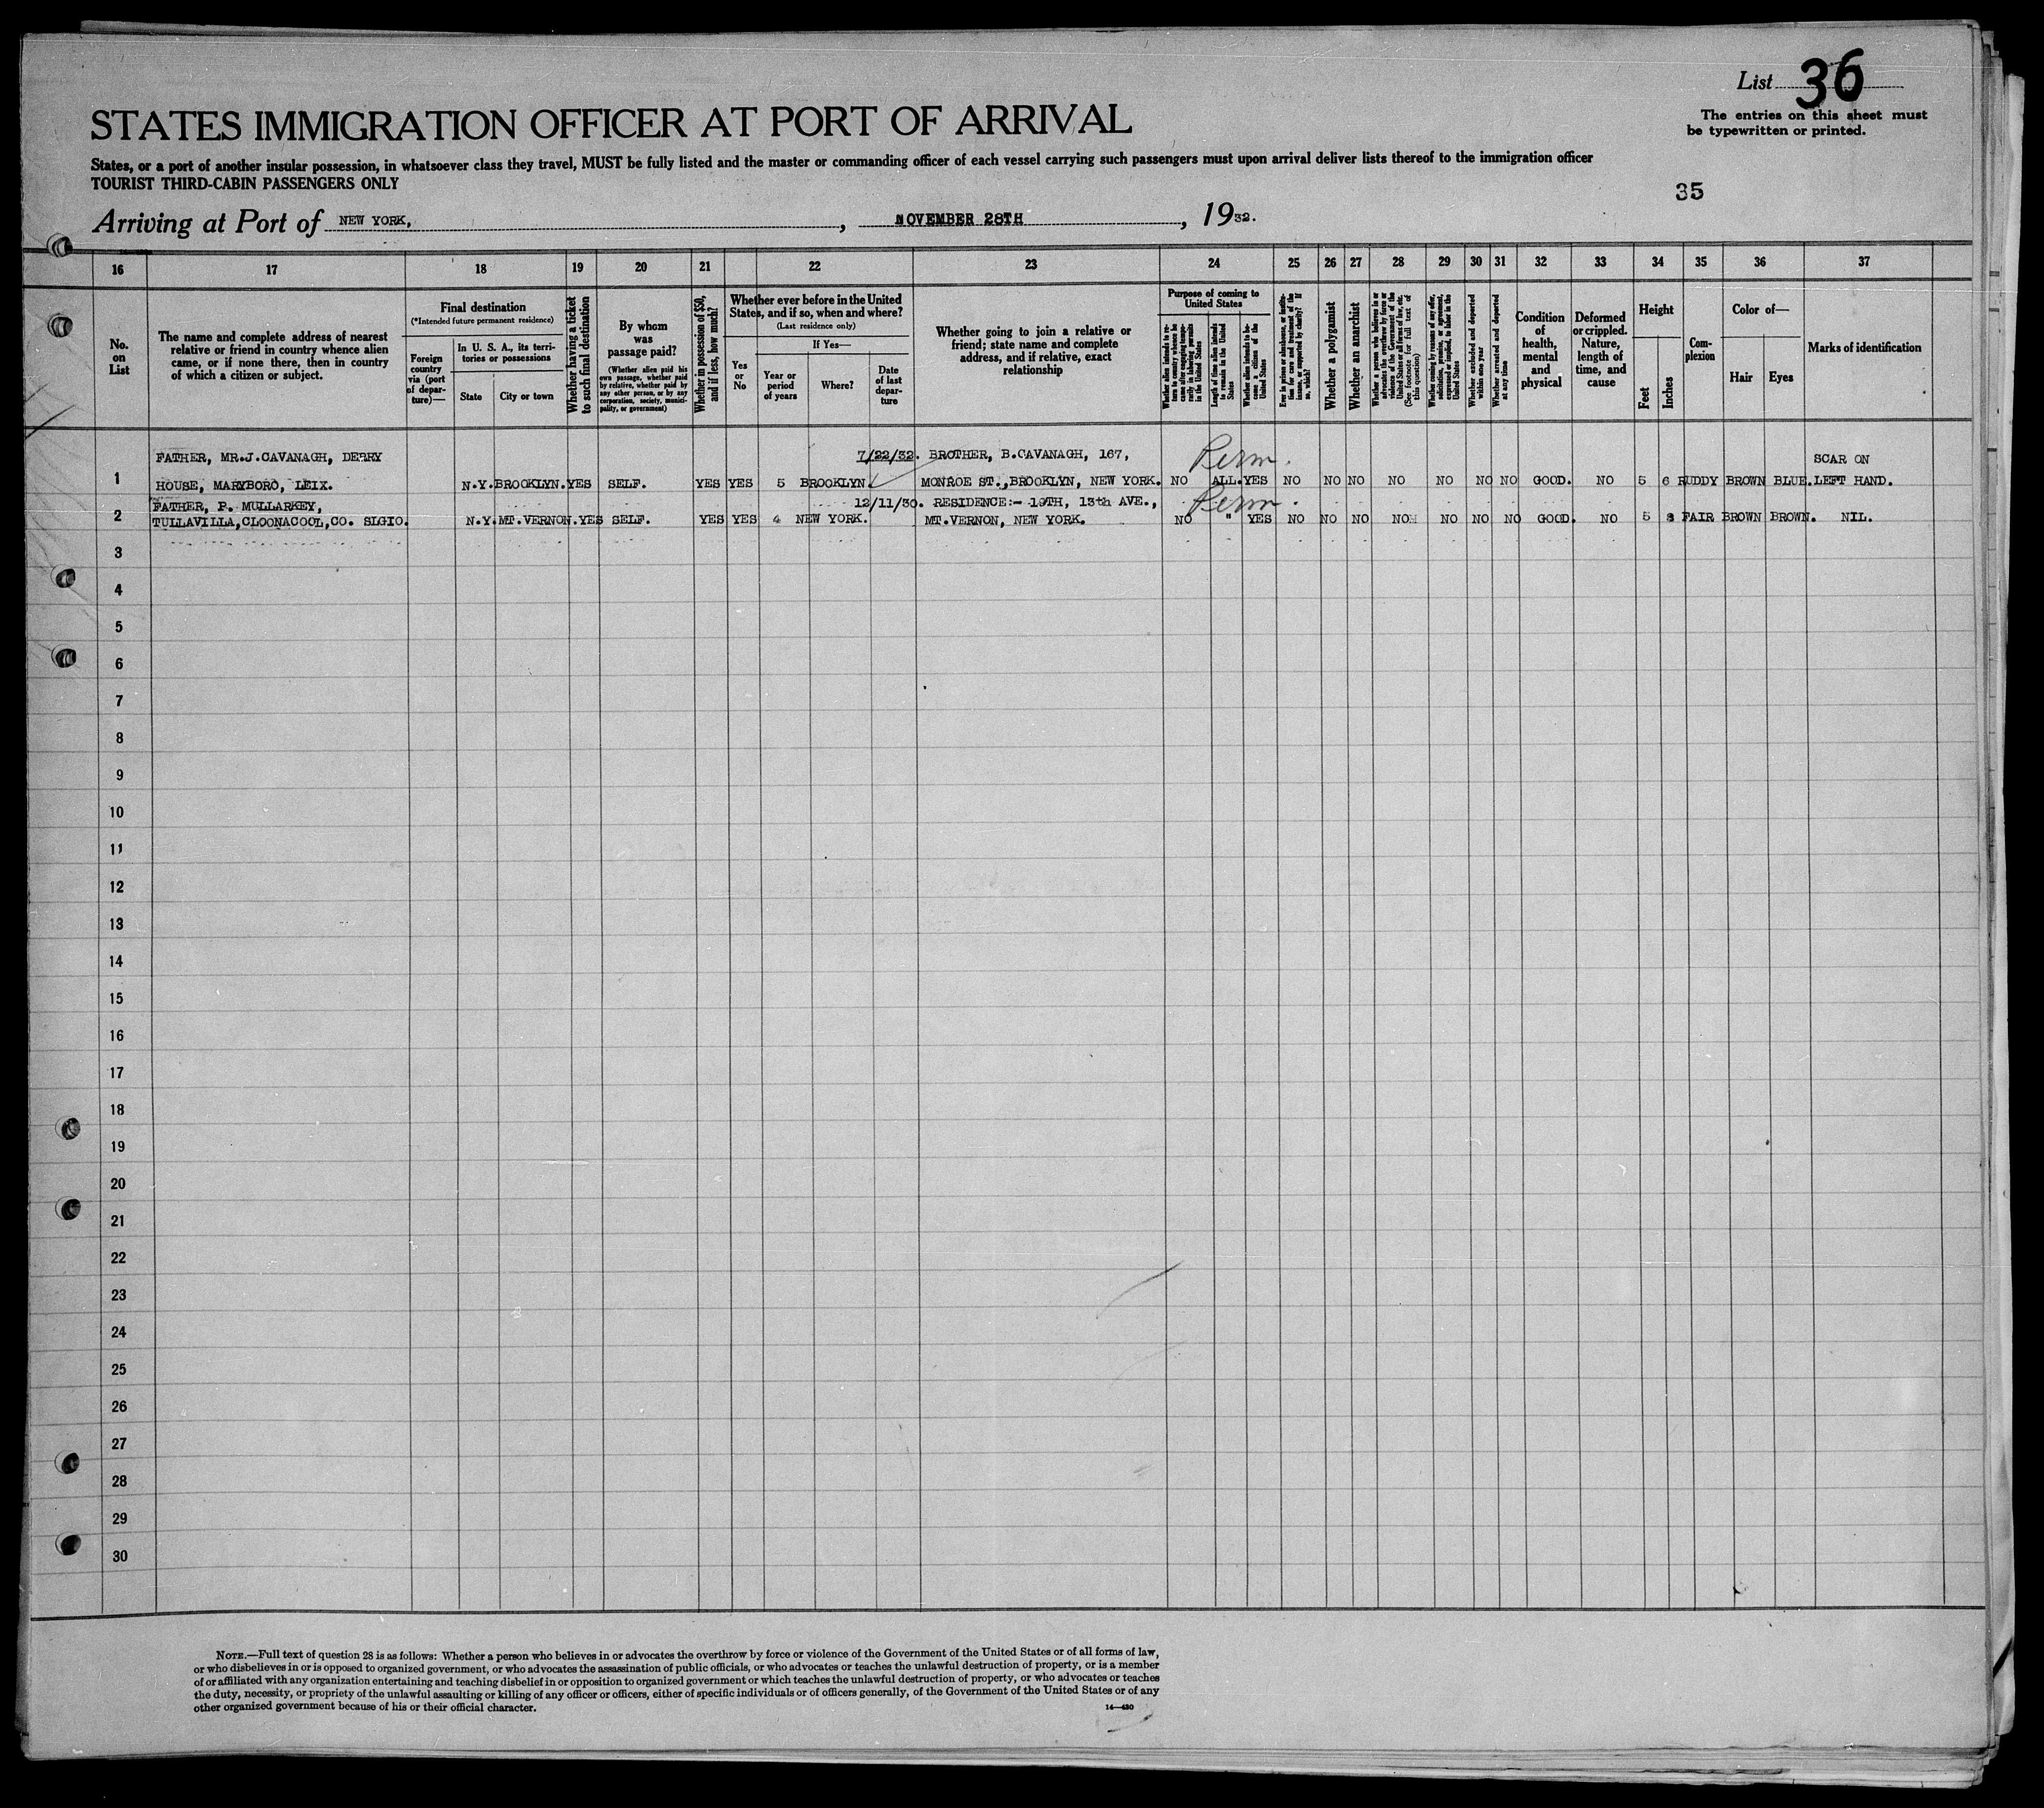 List 36
The entries on this sheet must
be typewritten or printed.
STATES IMMIGRATION OFFICER AT PORT OF ARRIVAL
States, or a port of another insular possession, in whatsoever class they travel, MUST be fully listed and the master or commanding officer of each vessel carrying such passengers must upon arrival deliver lists thereof to the immigration officer
TOURIST THIRD-CABIN PASSENGERS ONLY
35
Arriving at Port of NEW YORK, , NOVEMBER 28TH , 1932.
16 17 18 19 20 21 22 23 24 25 26 27 28 29 30 31 32 33 34 35 36 37
No. on List
The name and complete address of nearest
relative or friend in country whence alien
came, or if none there, then in country
of which a citizen or subject.
Final destination
(*Intended future permanent residence)
Foreign
country
via (port
of depar-
ture)—
In U. S. A., its terri-
tories or possessions
State
City or town
Whether having a ticket
to such final destination
By whom
was
passage paid?
(Whether alien paid his
own passage, whether paid
by relative, whether paid by
any other person, or by any
corporation, society, munici-
pality, or government)
Whether in possession of $50,
and if less, how much?
Whether ever before in the United
States, and if so, when and where?
(Last residence only)
Yes
or
No
If Yes—
Year or
period
of years
Where?
Date
of last
depar-
ture
Whether going to join a relative or
friend; state name and complete
address, and if relative, exact
relationship
Purpose of coming to
United States
Length of time alien intends
to remain in the United
States
Whether alien intends to be-
come a citizen of the
United States
Whether a polygamist
Whether an anarchist
(See footnote for full text of
this question)
Whether excluded and deported
within one year
Whether arrested and deported
at any time
Condition
of
health,
mental
and
physical
Deformed
or crippled.
Nature,
length of
time, and
cause
Height
Feet
Inches
Com-
plexion
Color of—
Hair
Eyes
Marks of identification
FATHER, MR.J.CAVANAGH, DERRY 7/22/32. BROTHER, B.CAVANAGH, 167, Perm. SCAR ON
1 HOUSE, MARYBORO, LEIX. N.Y. BROOKLYN. YES SELF. YES YES 5 BROOKLYN. MONROE ST., BROOKLYN, NEW YORK. NO ALL. YES NO NO NO NO NO NO NO GOOD. NO 5 6 RUDDY BROWN BLUE. LEFT HAND.
FATHER, P. MULLARKEY, 12/11/30. RESIDENCE:- 19TH, 13th AVE., Perm.
2 TULLAVILLA, CLOONACOOL, CO. SLGIO. N.Y. MT. VERNON. YES SELF. YES YES 4 NEW YORK. MT. VERNON, NEW YORK. NO " YES NO NO NO NO NO NO NO GOOD. NO 5 8 FAIR BROWN BROWN. NIL.
3
4
5
6
7
8
9
10
11
12
13
14
15
16
17
18
19
20
21
22
23
24
25
26
27
28
29
30
NOTE.—Full text of question 28 is as follows: Whether a person who believes in or advocates the overthrow by force or violence of the Government of the United States or of all forms of law,
or who disbelieves in or is opposed to organized government, or who advocates the assassination of public officials, or who advocates or teaches the unlawful destruction of property, or is a member
of or affiliated with any organization entertaining and teaching disbelief in or opposition to organized government or which teaches the unlawful destruction of property, or who advocates or teaches
the duty, necessity, or propriety of the unlawful assaulting or killing of any officer or officers, either of specific individuals or of officers generally, of the Government of the United States or of any
other organized government because of his or their official character.
14—430